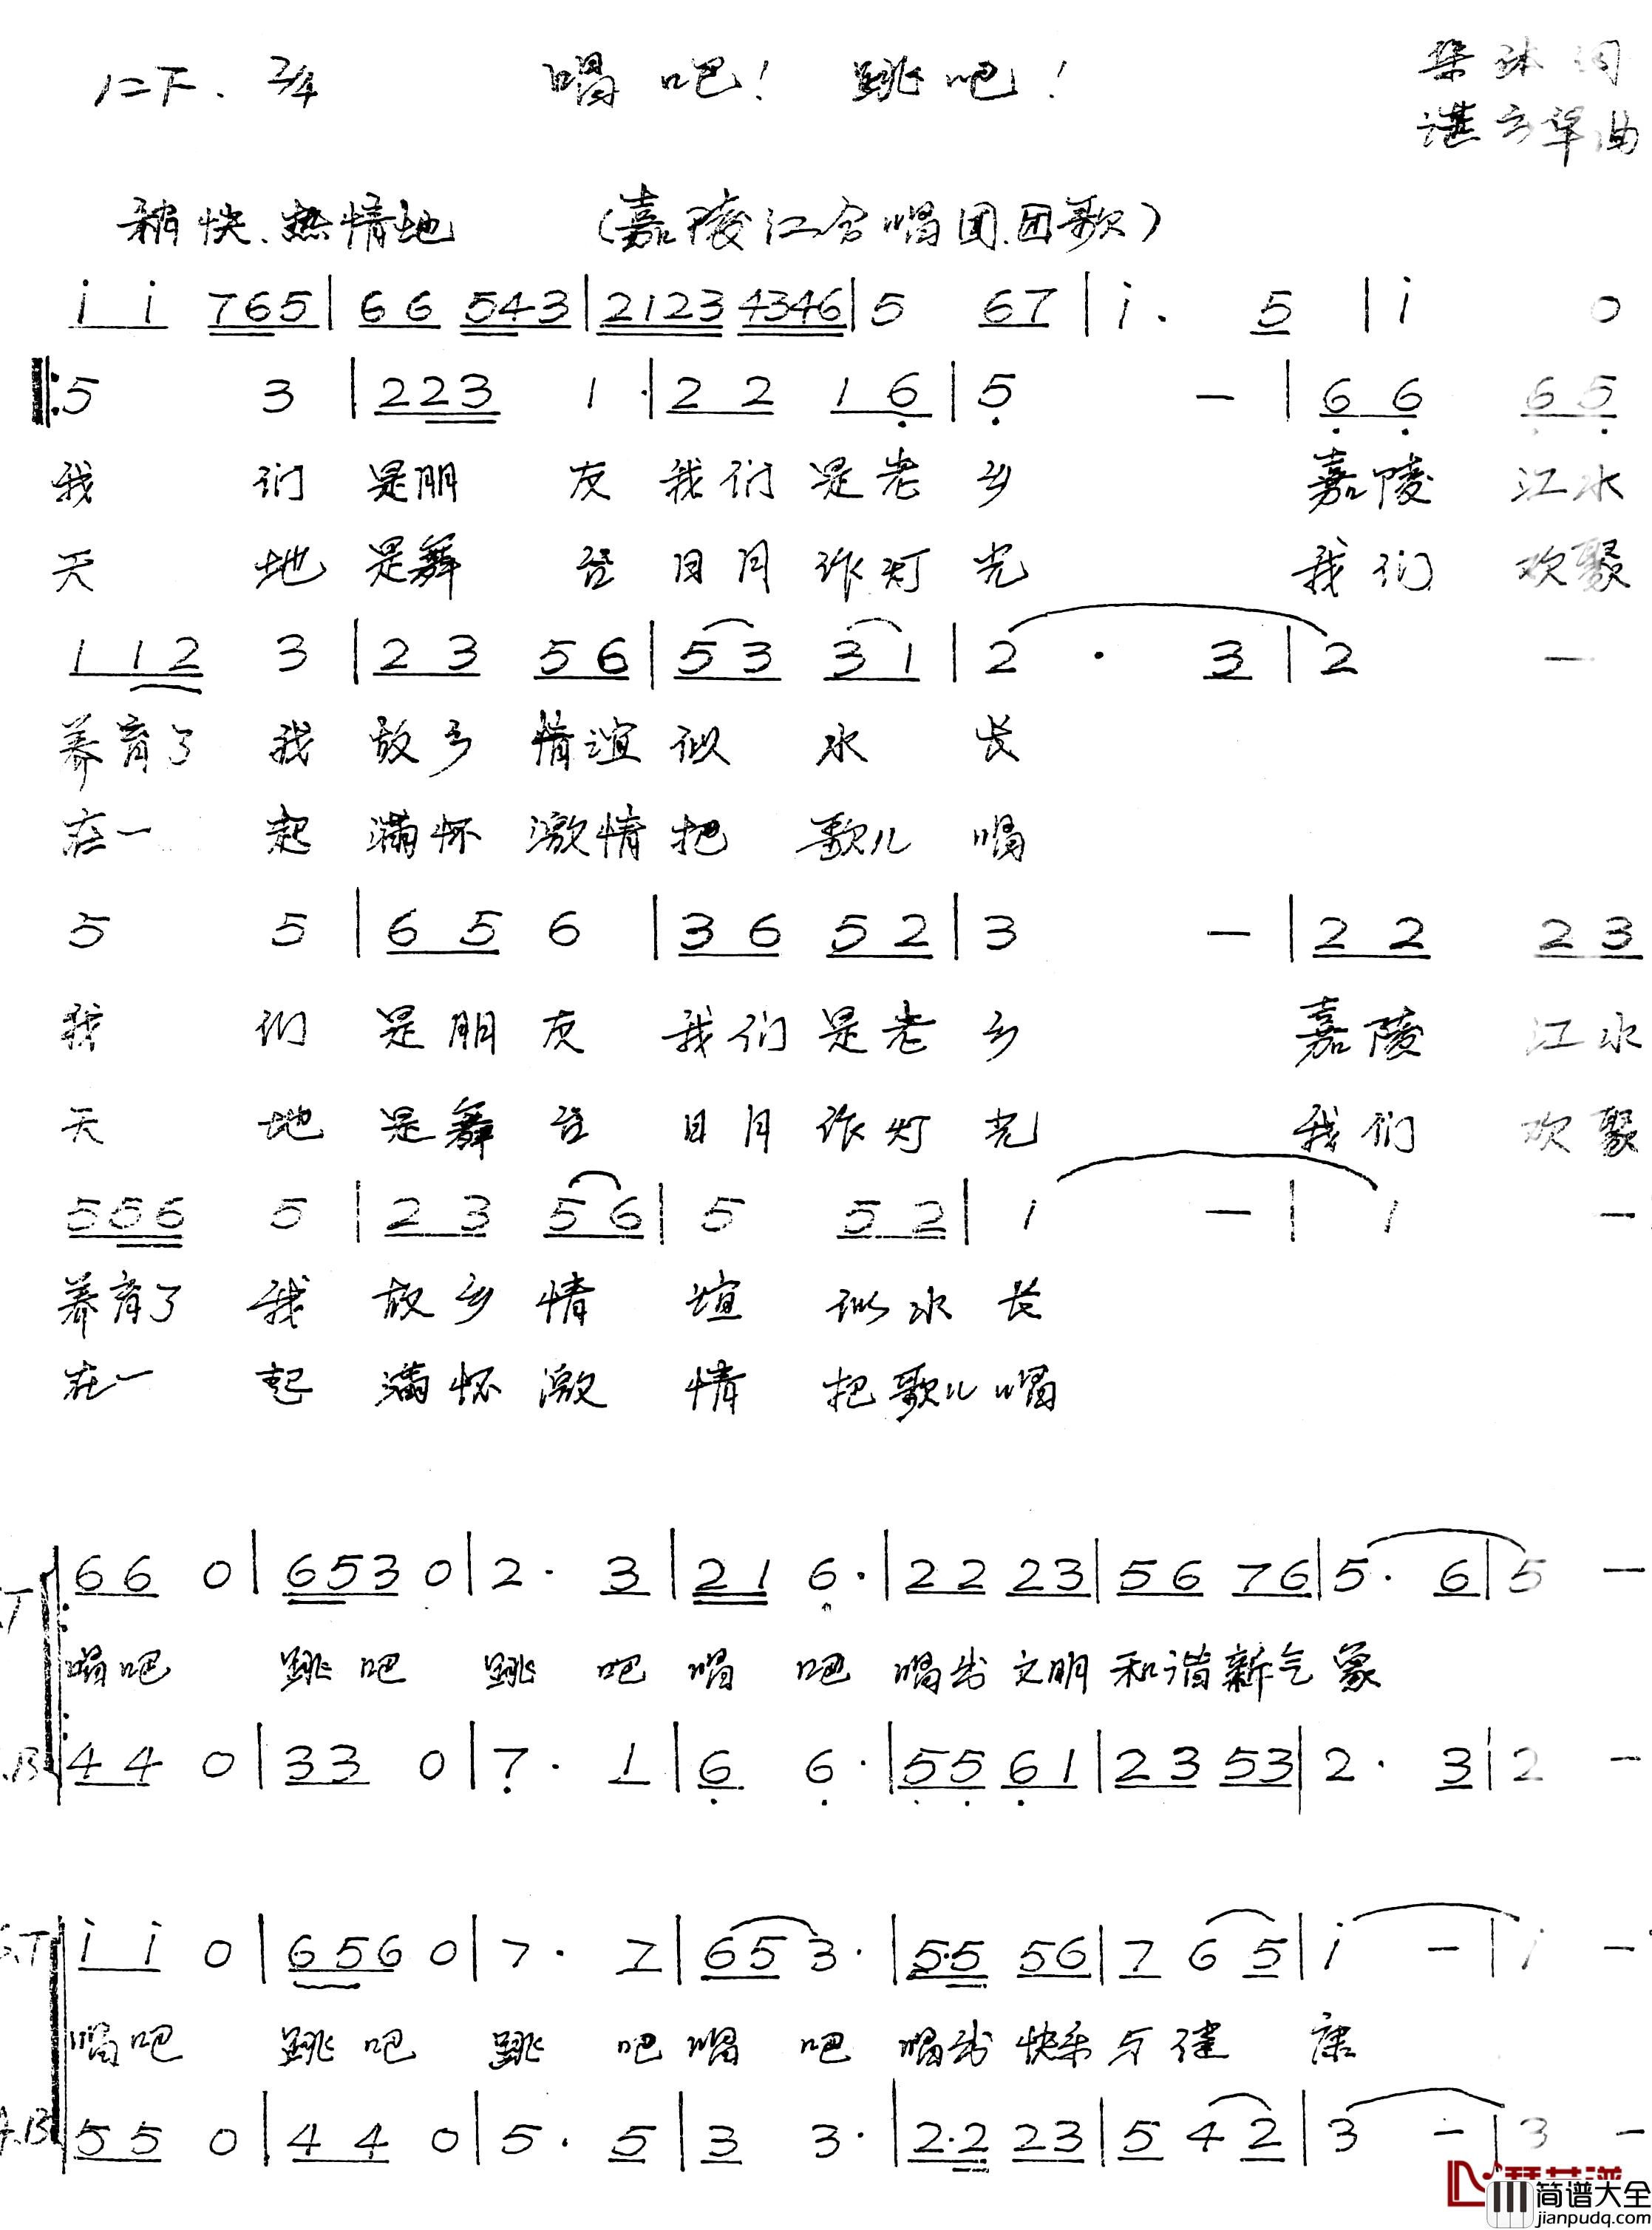 1=F. 2/4 唱吧！ 跳吧！ 词
谌云华曲
稍快、热情地 （嘉陵江合唱团.团歌）
i i 765 | 66 543 | 2123 4346 | 5 67 | i. 5 | i 0
5 3 | 223 1 · | 22 16 | 5 – | 66 65
我们是朋友我们是老乡 嘉陵江水
天地是舞台日月作灯光 我们欢聚
112 3 | 23 56 | 53 31 | 2 · 3 | 2 –
养育了我故乡情谊似水长
在一起满怀激情把歌儿唱
5 5 | 65 6 | 36 52 | 3 – | 22 23
我们是朋友我们是老乡 嘉陵江水
天地是舞台日月作灯光 我们欢聚
556 5 | 23 56 | 5 52 | 1 – | 1 –
养育了我故乡情谊似水长
在一起满怀激情把歌儿唱
T 66 0 | 653 0 | 2· 3 | 21 6· | 22 23 | 56 76 | 5· 6 | 5 –
唱吧 跳吧 跳吧唱吧 唱出文明和谐新气象
.B 44 0 | 33 0 | 7· 1 | 6 6· | 55 61 | 23 53 | 2· 3 | 2 –
S.T i i 0 | 656 0 | 7· 7 | 65 3· | 5·5 56 | 7 6 5 | i – | i –
唱吧 跳吧 跳吧唱吧 唱出快乐与健康
A.B 55 0 | 44 0 | 5· 5 | 3 3· | 2·2 23 | 5 4 2 | 3 – | 3 –
简谱大全
jianpudq.com